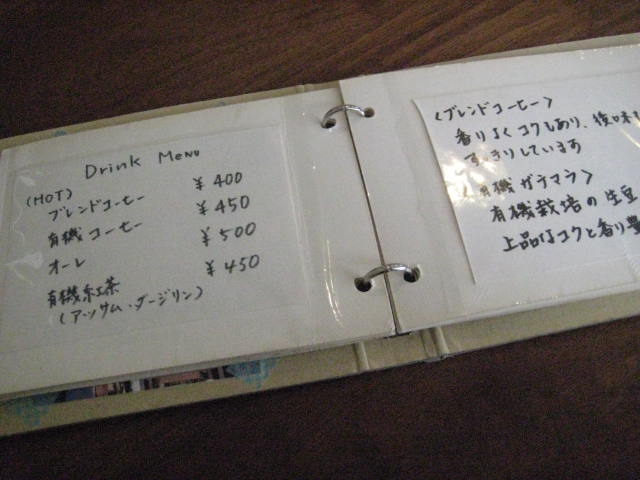 Drink Menu
(HOT)
ブレンドコーヒー ¥400
有機コーヒー ¥450
オーレ ¥500
有機紅茶 ¥450
(アッサム・ダージリン)
〈ブレンドコーヒー〉
香りよくコクもあり、後味も
すっきりしています
〈有機ガテマラ〉
有機栽培の生豆
上品なコクと香り豊